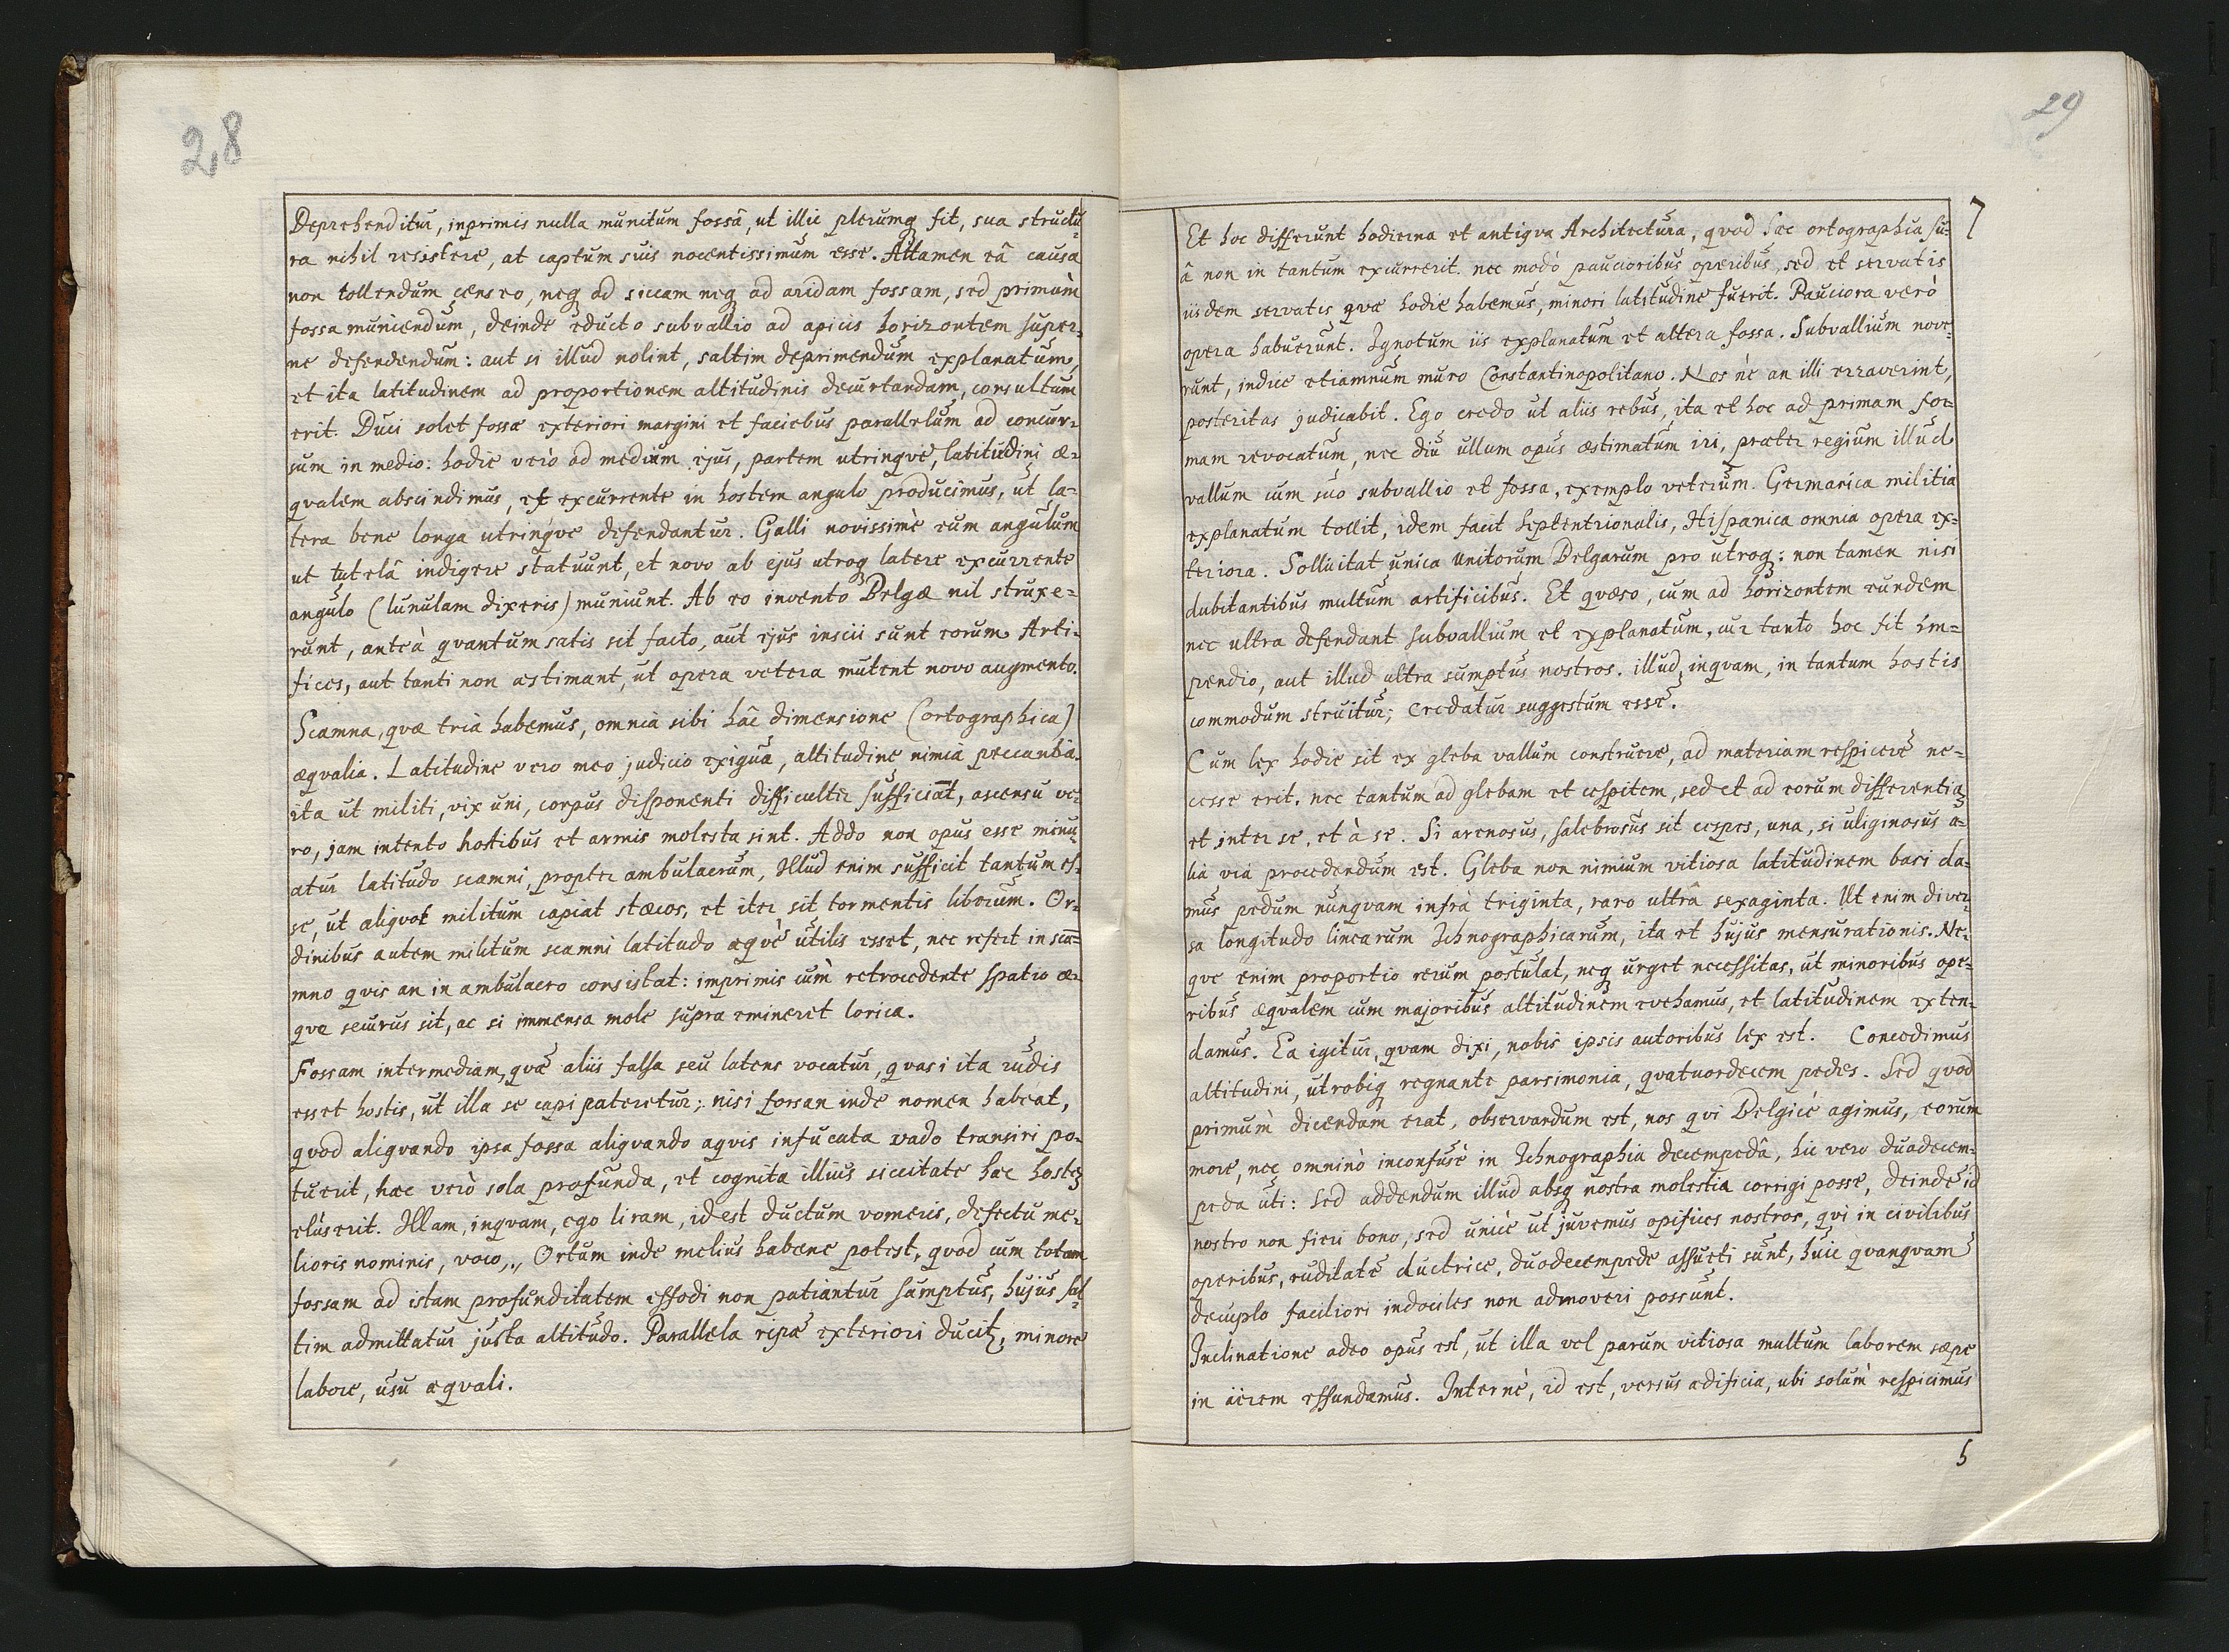 28
Deprehenditur, inprimis nulla munitum fossâ, ut illic plerumq; fit, sua structu-
ra nihil resistere, at captum suis nocentissimum esse. Attamen eâ causa
non tollendum censeo, neq; ad siccam neq; ad aridam fossam, sed primùm
fossa muniendum, deinde educto subvallio ad apicis horizontem super-
ne defendendum: aut si illud nolint, saltim deprimendum explanatum,
et ita latitudinem ad proportionem altitudinis decurtandam, consultum
erit. Duci solet fossæ exteriori margini et faciebus parallelum ad concur-
sum in medio: hodie verò ad medium ejus, partem utrinqve, latitudini æ-
qvalem abscindimus, et excurrente in hostem angulo producimus, ut la-
tera bene longa utrinqve defendantur. Galli novissimè eum angulum
ut tutelâ indigere statuunt, et novo ab ejus utroq; latere excurrente
angulo (lunulam dixeris) muniunt. Ab eo invento Belgæ nil struxe-
runt, anteà qvantum satis sit facto, aut ejus inscii sunt eorum Arti-
fices, aut tanti non æstimant, ut opera vetera mutent novo augmento.
Scamna, qvæ tria habemus, omnia sibi hâc dimensione (ortographica)
æqvalia. Latitudine vero meo judicio exigua, altitudine nimia peccantia.
ita ut militi, vix uni, corpus disponenti difficulter sufficiāt, ascensu ve-
ro, jam intento hostibus et armis molesta sint. Addo non opus esse minu-
atur latitudo scamni, propter ambulacrum, Illud enim sufficit tantum es-
se, ut aliqvot militum capiat stæcos, et iter sit tormentis liberum. Or-
dinibus autem militum scamni latitudo æqvè utilis esset, nec refert in sca-
mno qvis an in ambulacro consistat: imprimis cùm retrocedente spatio æ-
qve securus sit, ac si immensa mole supra emineret lorica.
Fossam intermediam, qvæ aliis falsa seu latens vocatur, qvasi ita rudis
esset hostis, ut illa se capi pateretur; nisi forsan inde nomen habeat,
qvod aliqvando ipsa fossa aliqvando aqvis infucata vado transiri po-
tuerit, hæc verò sola profunda, et cognita illius siccitate hæc hostē
eluserit. Illam, inqvam, ego liram, id est ductum vomeris, defectu me-
lioris nominis, voco,., Ortum inde melius habere potest, qvod cum totam
fossam ad istam profunditatem effodi non patiantur sumptus, hujus sal-
tim admittatur justa altitudo. Parallela ripæ exteriori ducitꝫ, minore
labore, usu æqvali.
29
7
Et hoc differunt hodierna et antiqva Architectura, qvod hæc ortographia su-
â non in tantum excurrerit. nec modò paucioribus operibus, sed et servatis
iisdem servatis qvæ hodie habemus, minori latitudine fuerit. Pauciora verò
opera habuerunt. Ignotum iis explanatum et altera fossa. Subvallium nove-
runt, indice etiamnum muro Constantinopolitano. Nos nè an illi erraverint,
posteritas judicabit. Ego credo ut aliis rebus, ita et hoc ad primam for-
mam revocatum, nec diu ullum opus æstimatum iri, præter regium illud
vallum cum suo subvallio et fossa, exemplo veterum. Germanica militia
explanatum tollit, idem facit Septentrionalis, Hispanica omnia opera ex-
teriora. Sollicitat unica Unitorum Belgarum pro utroq;: non tamen nisi
dubitantibus multum artificibus. Et qvæso, cum ad horizontem eundem
nec ultra defendant subvallium et explanatum, cur tanto hoc fit im-
pendio, aut illud ultra sumptus nostros. illud, inqvam, in tantum hostis
commodum struitur; credatur suggestum esse.
Cum lex hodie sit ex gleba vallum construere, ad materiam respicere ne-
cesse erit. nec tantum ad glebam et cespitem, sed et ad eorum differentiā
et inter se, et à se. Si arenosus, salebrosus sit cespes, una, si uliginosus a-
lia via procedendum est. Gleba non nimium vitiosa latitudinem basi da-
mus pedum nunqvam infrà triginta, raro ultrâ sexaginta. Ut enim diver-
sa longitudo linearum Ichnographicarum, ita et hujus mensurationis. Ne-
qve enim proportio rerum postulat, neq; urget necessitas, ut minoribus ope-
ribus æqvalem cum majoribus altitudinem evehamus, et latitudinem exten-
damus. Ea igitur, qvam dixi, nobis ipsis autoribus lex est. Concedimus
altitudini, utrobiq; regnante parsimonia, qvatuordecem pedes. Sed qvod
primùm dicendum erat, observandum est, nos qvi Belgicè agimus, eorum
more, nec omninò inconfusè in Ichnographia decempedâ, hic vero duodecem-
peda uti: sed addendum illud absq; nostra molestia corrigi posse, deinde id
nostro non fieri bono, sed unicè ut juvemus opifices nostros, qvi in civilibus
operibus, ruditate ductrice, duodecempede assueti sunt, huic qvanqvam
decuplo faciliori indociles non admoveri possunt.
Inclinatione adeo opus est, ut illa vel parum vitiosa multum laborem sæpe
in aërem effundamus. Internè, id est, versus ædificia, ubi solùm respicimus
5